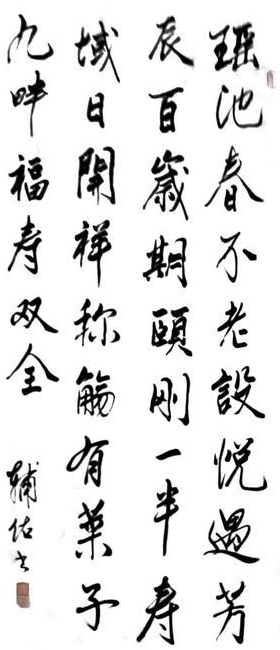 瑶池春不老設悦遇芳
辰百歲期頤剛一半寿
域日開祥称觴有葉子
九畔福寿双全
輔佑书